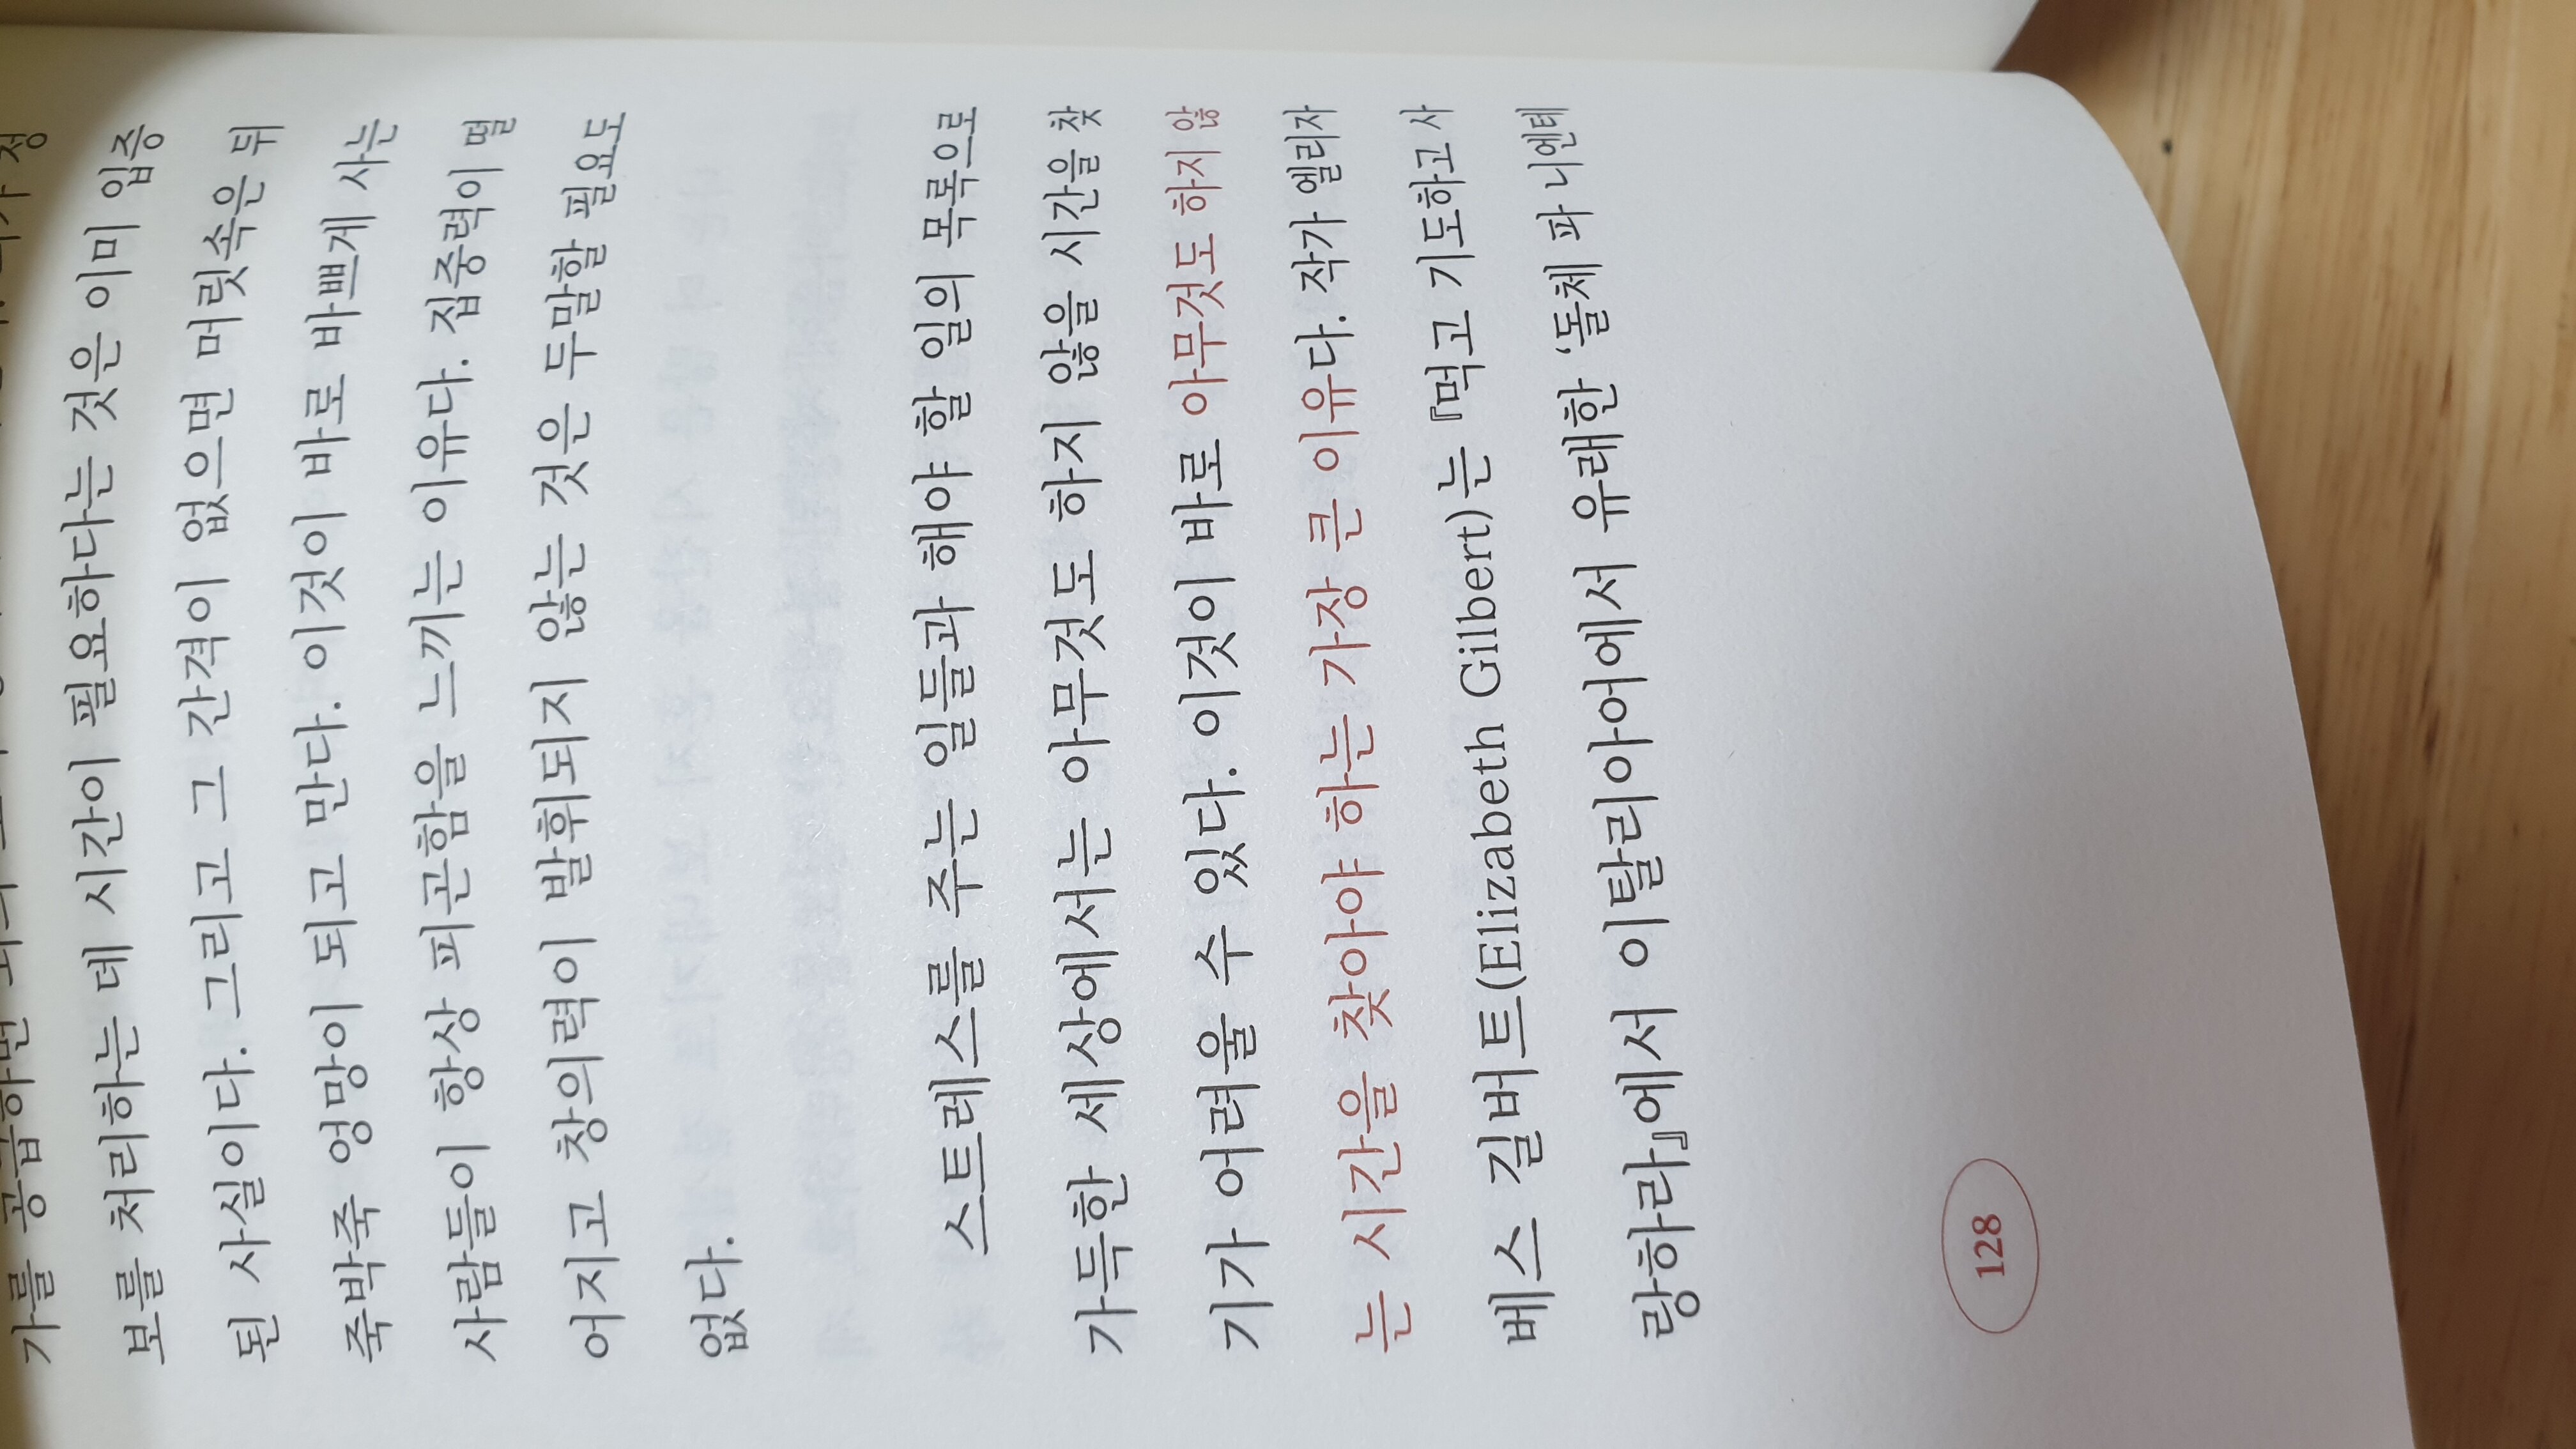 가를 공급하면
보를 처리하는 데 시간이 필요하다는 것은 이미 입증
된 사실이다. 그리고 그 간격이 없으면 머릿속은 뒤
죽박죽 엉망이 되고 만다. 이것이 바로 바쁘게 사는
사람들이 항상 피곤함을 느끼는 이유다. 집중력이 떨
어지고 창의력이 발휘되지 않는 것은 두말할 필요도
없다.
스트레스를 주는 일들과 해야 할 일의 목록으로
가득한 세상에서는 아무것도 하지 않을 시간을 찾
기가 어려울 수 있다. 이것이 바로 아무것도 하지 않
는 시간을 찾아야 하는 가장 큰 이유다. 작가 엘리자
베스 길버트(Elizabeth Gilbert)는 『먹고 기도하고 사
랑하라』에서 이탈리아어에서 유래한 ‘돌체 파 니엔테
128